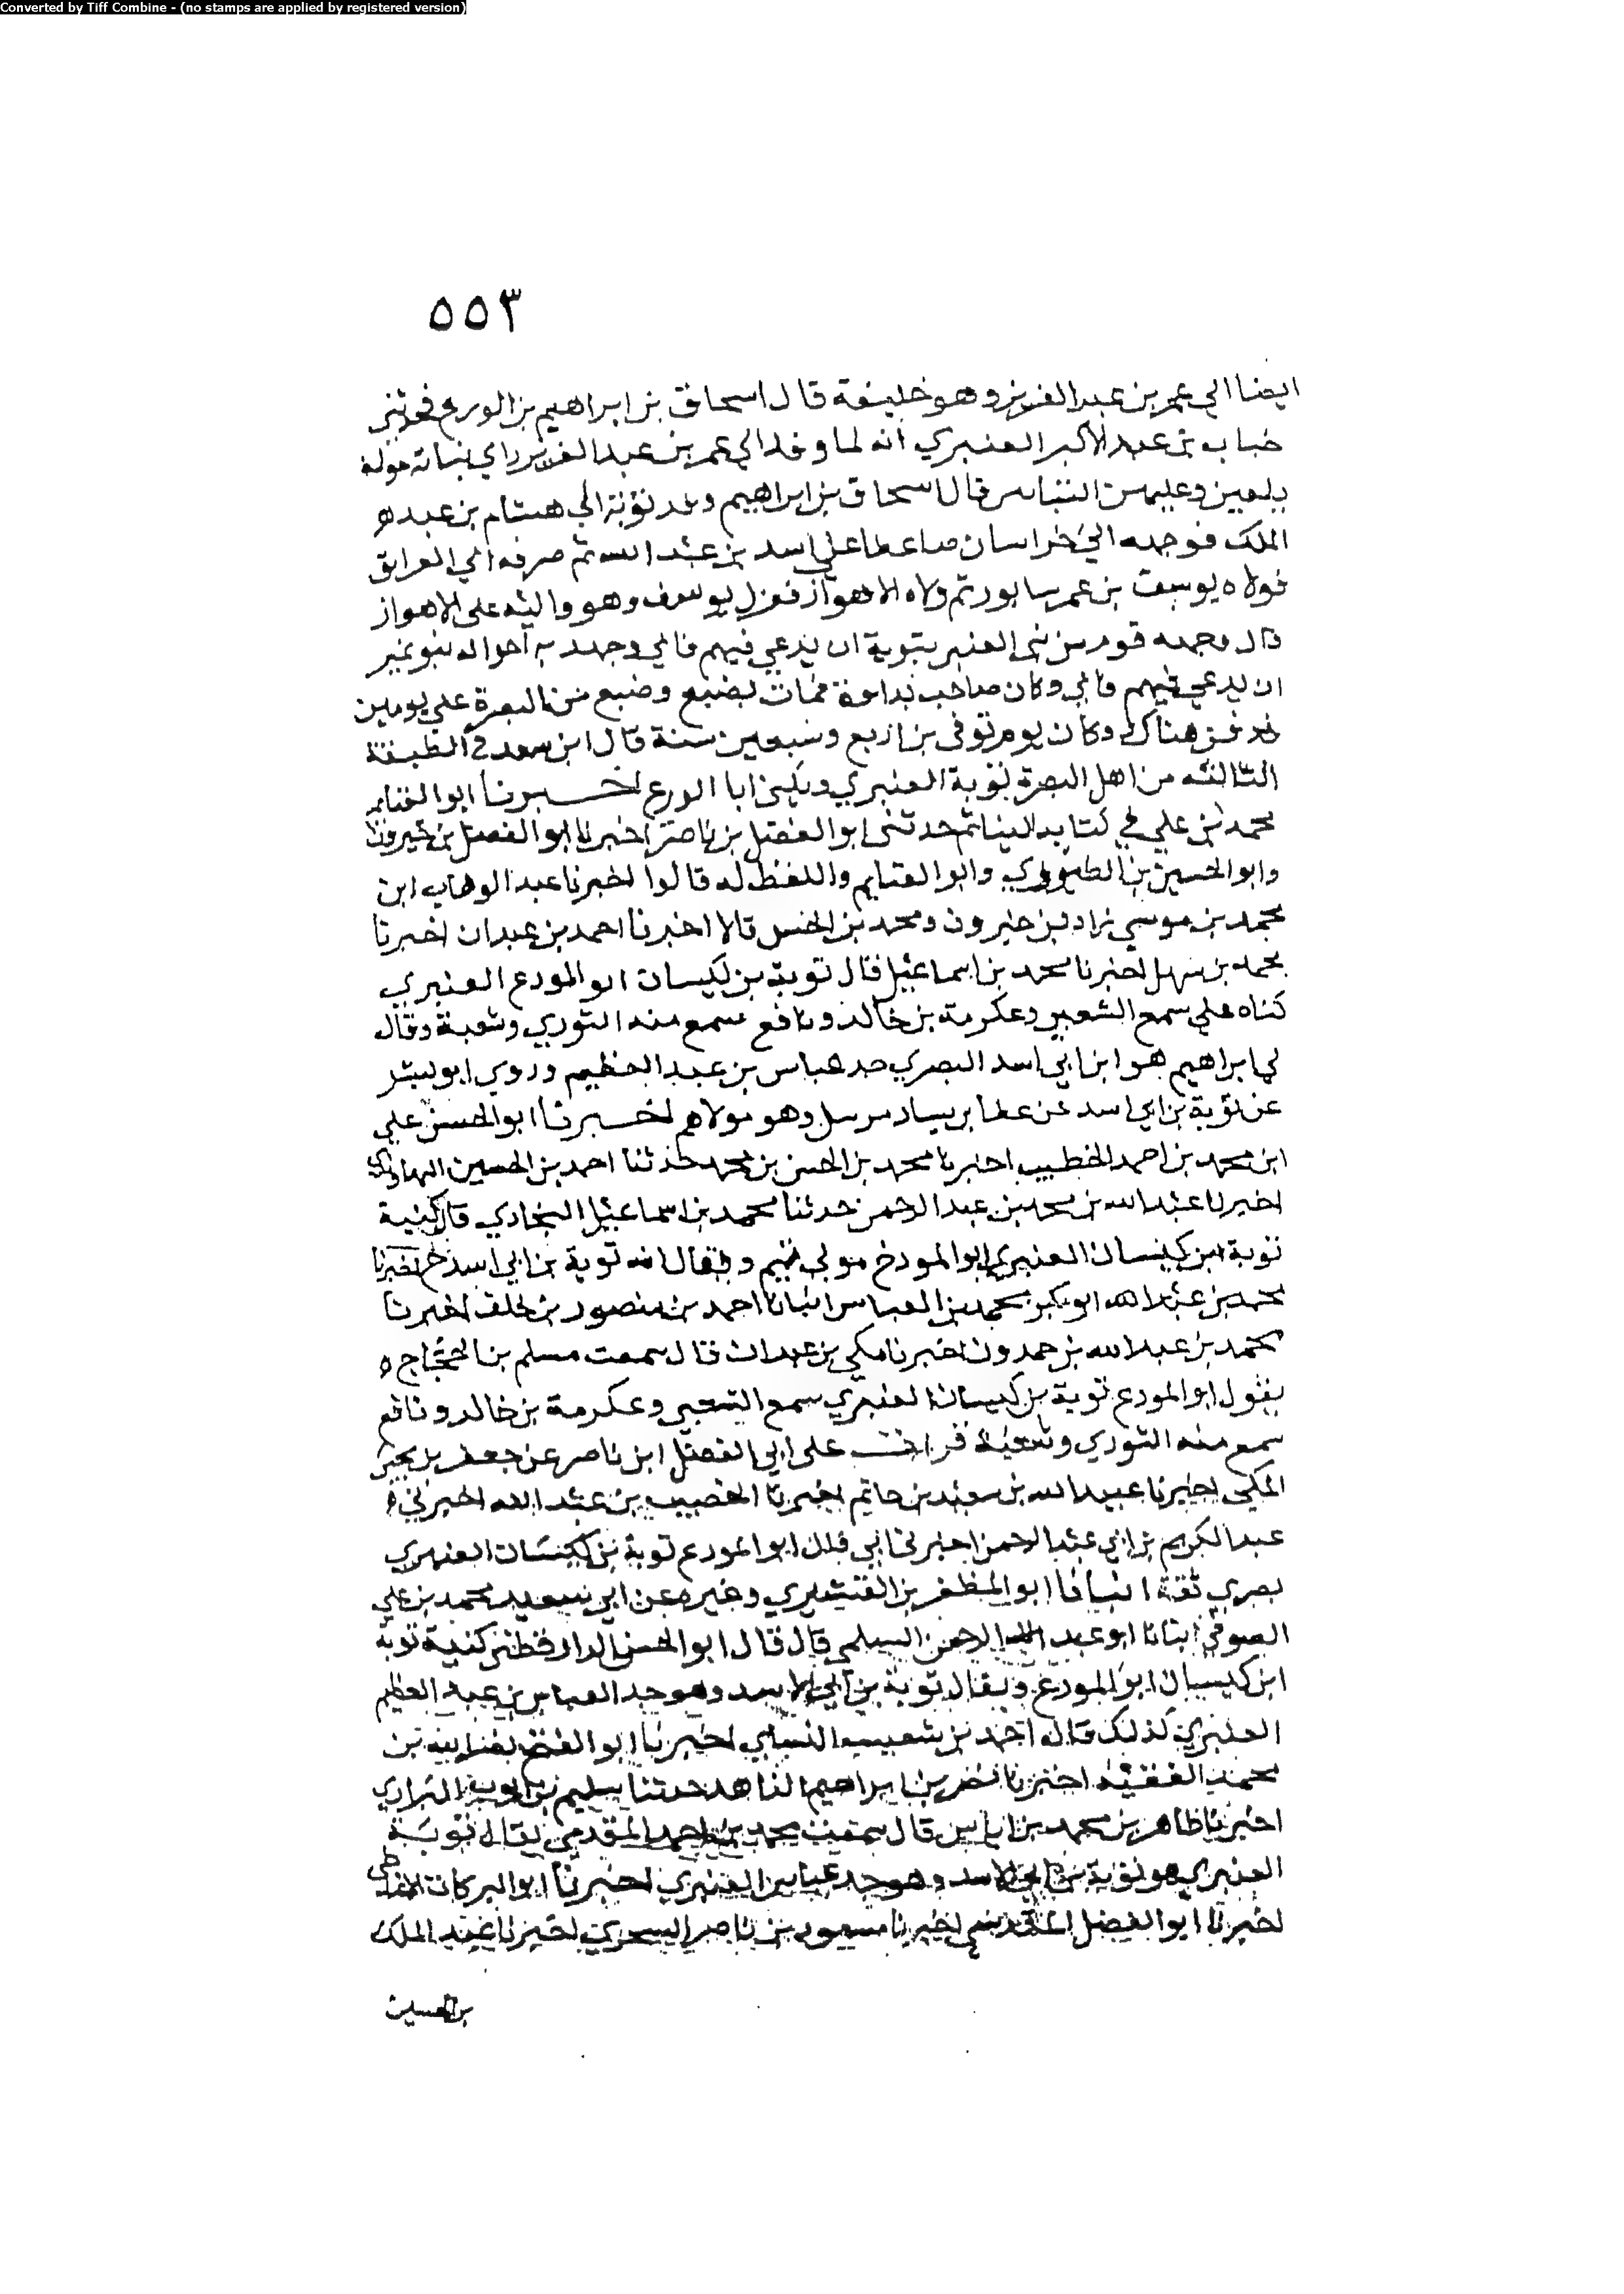 Converted by Tiff Combine - (no stamps are applied by registered version)
٥٥٣
ايضا الي عمر بن عبد العزيز وهو خليفة قال اسحاق بن ابراهيم بن الورع
خباب بن عبد الاكبر العنبري انه لما وفد الي عمر بن عبد العزيز راي نباته حوله
وعليهن قال اسحاق بن ابراهيم وفد توبة الي هشام بن عبد
الملك فوجهه الي خراسان علي اسد بن عبد الله ثم صرفه الي العراق
فولاه يوسف بن عمر سابور ثم ولاه الاهواز فعزل يوسف وهو واليه علي الاهواز
قال وجهد قوم من بني العنبر بتوبة ان يدعي فيهم فابي وجهد به اخواله بنو نمير
ان يدعي فيهم فابي وكان صاحب بداوة فمات بضبع وضبع من البصرة علي يومين
فدفن هناك وكان يوم توفي بن اربع وسبعين سنة قال ابن سعد في الطبقة
الثالثه من اهل البصرة توبة العنبري ويكني ابا الورع اخبرنا ابو الغنايم
محمد بن علي في كتابه الينا ثم حدثني ابو الفضل بن ناصر اخبرنا ابو الفضل بن خيرون
وابو الحسين بن الطيوري وابو الغنايم واللفظ له قالوا اخبرنا عبد الوهاب ابن
محمد بن موسي زاد بن خيرون ومحمد بن الحسن قالا اخبرنا احمد بن عبدان اخبرنا
محمد بن سهل اخبرنا محمد بن اسماعيل قال توبة بن كيسان ابو المورع العنبري
كناه علي سمع الشعبي وعكرمة بن خالد ونافع سمع منه الثوري وشعبة وقال
لي ابراهيم هو ابن ابي اسد البصري جد عباس بن عبد العظيم وروي ابو بشر
عن توبة بن ابي اسد عن عطا بن يسار مرسل وهو مولاهم اخبرنا ابو الحسن علي
ابن محمد بن احمد الخطيب اخبرنا محمد بن الحسن بن محمد حدثنا احمد بن الحسين النهاوندي
اخبرنا عبد الله بن محمد بن عبد الرحمن حدثنا محمد بن اسماعيل البخاري قال كنية
توبة ابن كيسان العنبري ابو المورع مولي تميم ويقال انه توبة بن ابي اسد اخبرنا
محمد بن عبد الله ابو بكر محمد بن العباس انبانا احمد بن منصور بن خلف اخبرنا
محمد بن عبد الله بن حمدون اخبرنا مكي بن عبدان قال سمعت مسلم بن الحجاج ه
يقول ابو المورع توبة بن كيسان العنبري سمع الشعبي وعكرمة بن خالد ونافع
سمع منه الثوري وشعبة قرات علي ابي الفضل ابن ناصر عن جعفر بن يحيي
المكي اخبرنا عبيد الله بن سعيد بن حاتم اخبرنا الخصيب بن عبد الله اخبرني
عبد الكريم بن ابي عبد الرحمن اخبرني ابي قال ابو المورع توبة بن كيسان العنبري
بصري ثقة انبانا ابو المظفر بن القشيري وغيره عن ابي سعيد محمد بن علي
الصوفي انبانا ابو عبد الرحمن السلمي قال قال ابو الحسن الدارقطني كنية توبة
ابن كيسان ابو المورع ويقال توبة بن ابي الاسد وهو جد العباس بن عبد العظيم
العنبري كذلك قال احمد بن شعيب النسابي اخبرنا ابو الفتح نصر الله بن
محمد الفقيه اخبرنا نصر بن ابراهيم الزاهد حدثنا سليم بن ايوب الرازي
اخبرنا طاهر بن محمد بن قال سمعت محمد بن احمد المقدمي يقال توبة
العنبري هو توبة بن ابي الاسد وهو جد عباس العنبري اخبرنا ابو البركات الانماطي
اخبرنا ابو الفضل المقدسي اخبرنا مسعود بن ناصر السجزي اخبرنا عبد الملك
بن الحسين